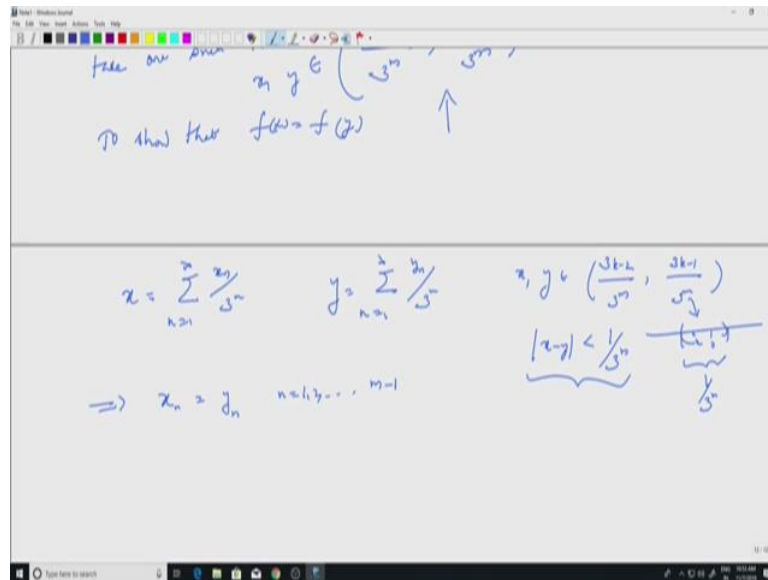 Note1 - Windows Journal
File Edit View Insert Actions Tools Help
take one such
x, y ∈ ( 3^m , 3^m )
To show that f(x) = f(y)
x = ∑_{n=1}^∞ x_n/3^n y = ∑_{n=1}^∞ y_n/3^n x, y ∈ ( 3k-2/3^m , 3k-1/3^m )
|x-y| < 1/3^m
1/3^m
⟹ x_n = y_n n=1,2,... m-1
Type here to search
ENG